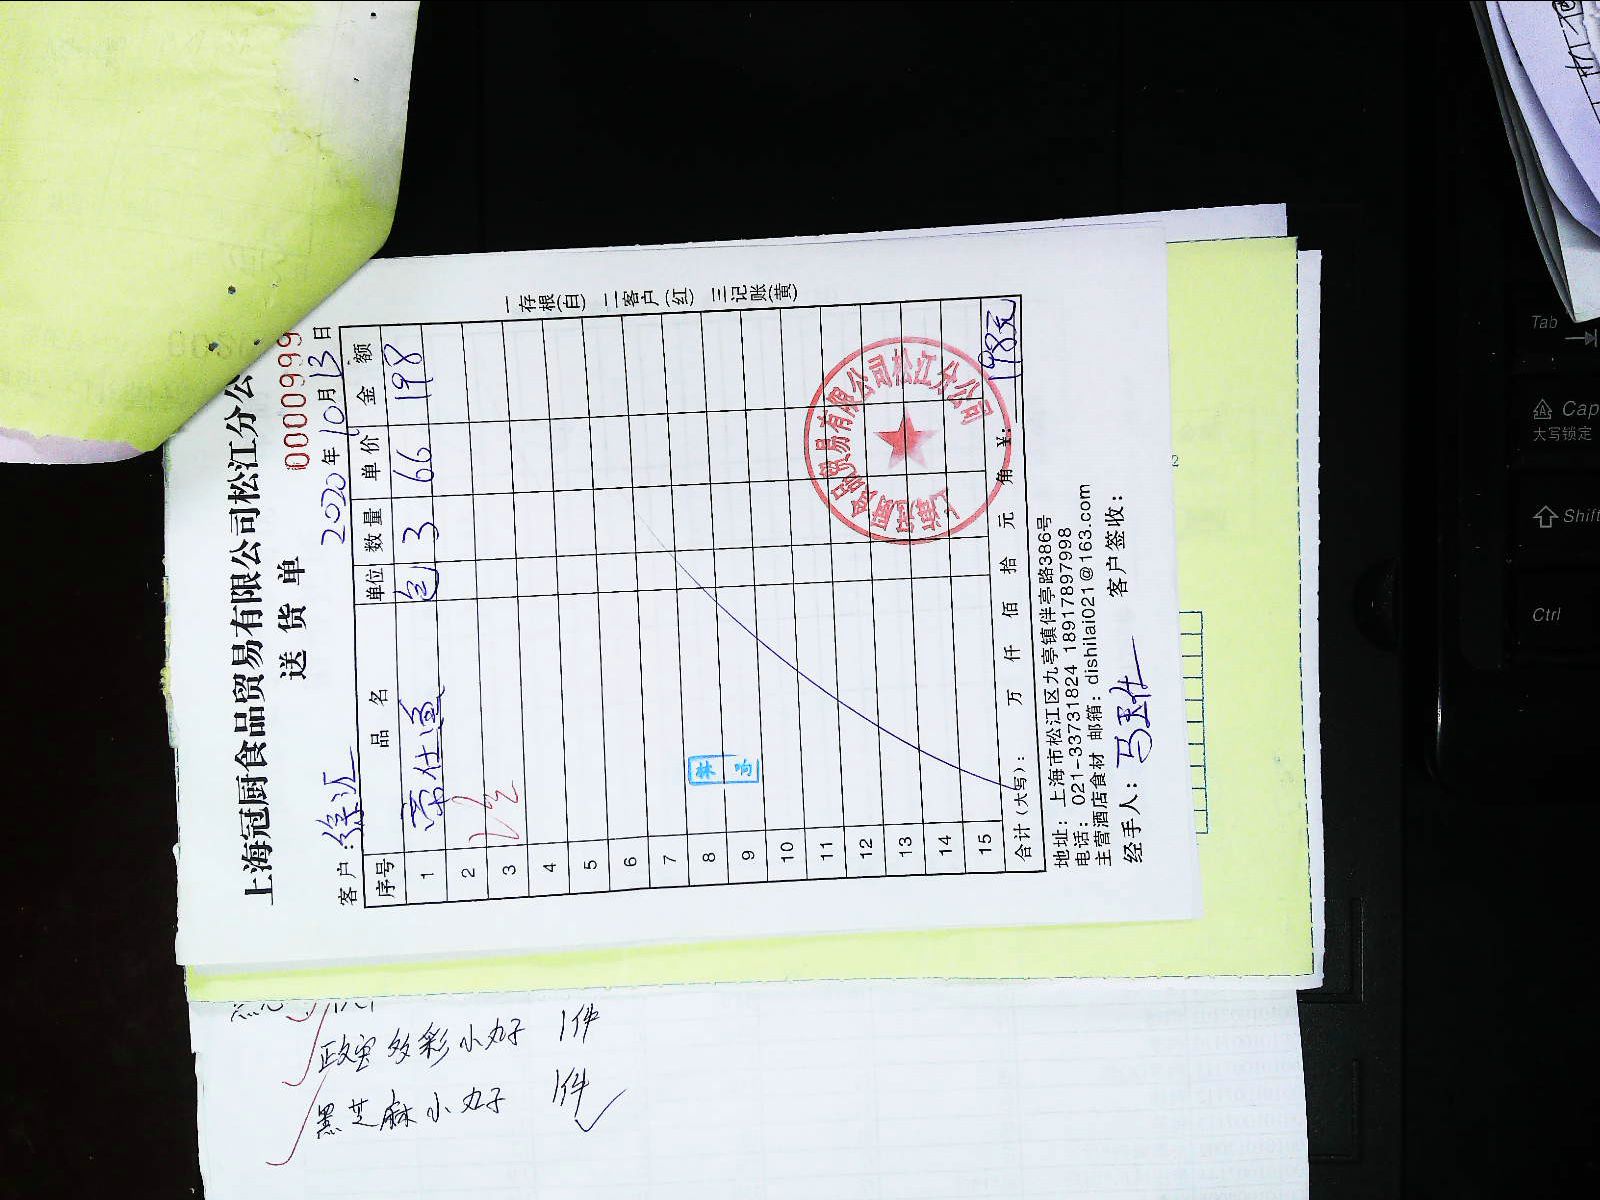 上海冠厨食品贸易有限公司松江分公
送货单
0000999
客户:徐汇
2020年10月13日
序号 品名 单位 数量 单价 金额
1 常仕鱼 包 3 66 198
2
3
4
5
6
7
8
9
10
11
12
13
14
15
林响
合计(大写): 万 仟 佰 拾 元 角 ¥: 198元
地址:上海市松江区九亭镇伴亭路386号
电话:021-33731824 18917897998
主营酒店食材 邮箱:dishilai021@163.com
经手人: 客户签收:
一存根(白) 二客户(红) 三记账(黄)
上海冠厨食品贸易有限公司松江分公司
多彩小丸子 1件
黑芝麻小丸子 1件
Tab
Cap
大写锁定
Shift
Ctrl